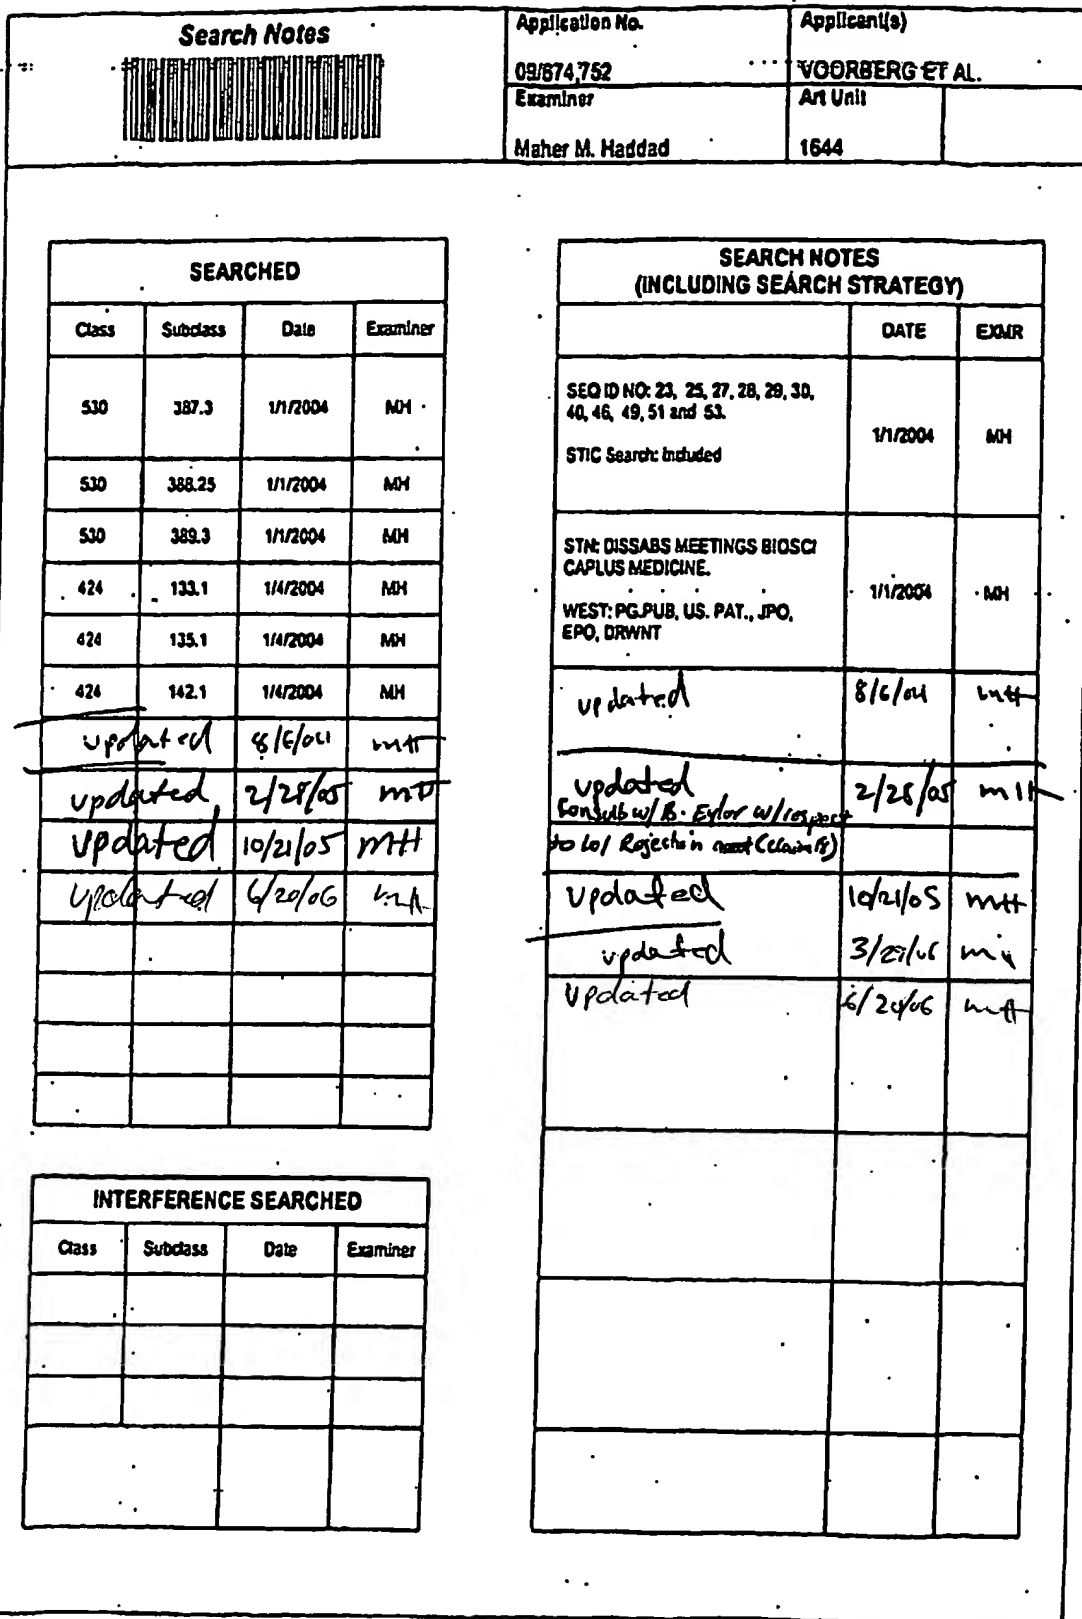 Search Notes
Application No.
Applicant(s)
09/674,752
VOORBERG ET AL.
Examiner
Art Unit
Maher M. Haddad
1644
SEARCHED
Class Subclass Date Examiner
530 387.3 1/1/2004 MH
530 388.25 1/1/2004 MH
530 389.3 1/1/2004 MH
424 133.1 1/4/2004 MH
424 135.1 1/4/2004 MH
424 142.1 1/4/2004 MH
updated 8/6/04 MH
updated 2/28/05 MH
updated 10/21/05 MH
updated 6/20/06 MH
INTERFERENCE SEARCHED
Class Subclass Date Examiner
SEARCH NOTES
(INCLUDING SEARCH STRATEGY)
DATE EXMR
SEQ ID NO: 23, 25, 27, 28, 29, 30,
40, 46, 49, 51 and 53.
STIC Search: included
1/1/2004 MH
STN: DISSABS MEETINGS BIOSCI
CAPLUS MEDICINE.
WEST: PG.PUB, US. PAT., JPO,
EPO, DRWNT
1/1/2004 MH
updated 8/6/04 MH
updated 2/28/05 MH
Consult w/ B. Eyler w/ respect
to 101 Rejection
updated 10/21/05 MH
updated MH
updated 6/20/06 MH